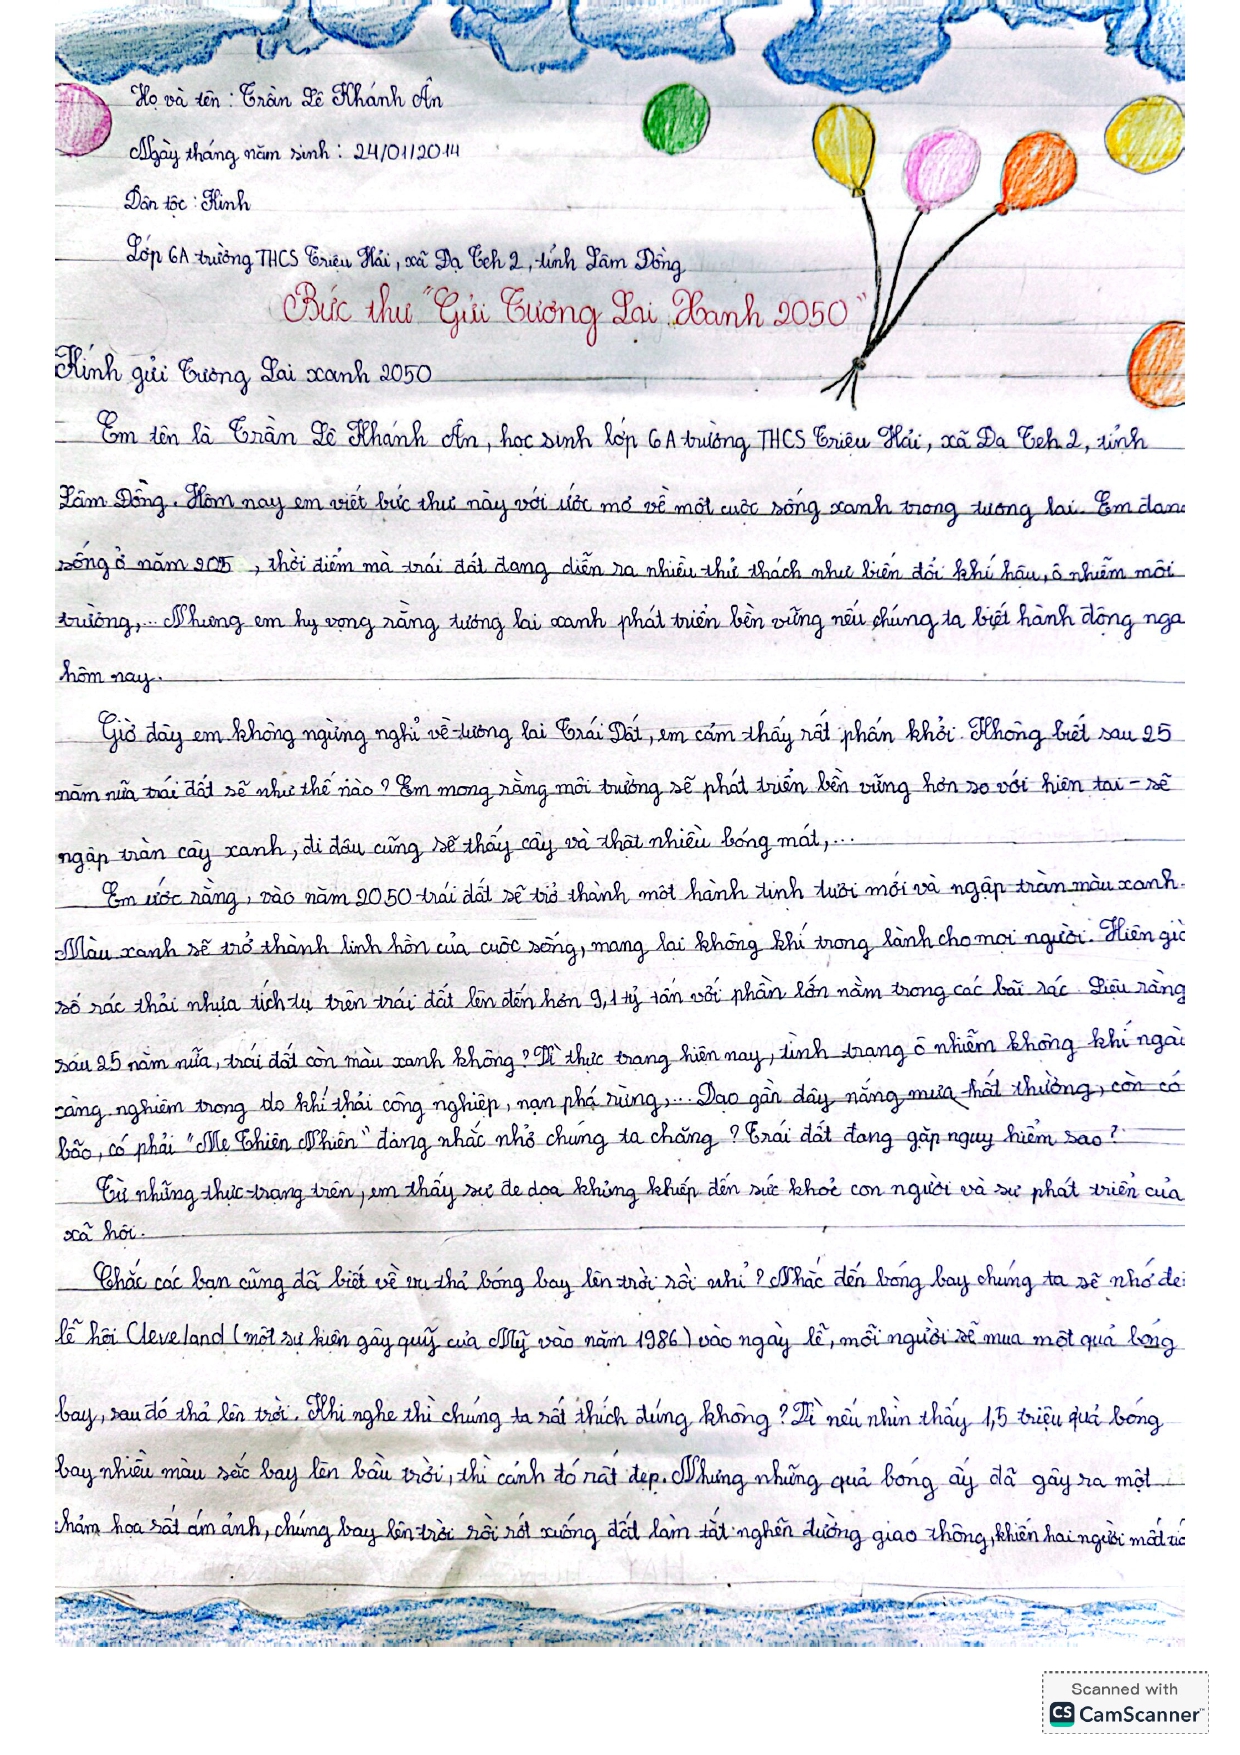 Họ và tên : Trần Lê Khánh Ân
Ngày tháng năm sinh : 24/01/2014
Dân tộc : Kinh
Lớp 6A trường THCS Triệu Hải, xã Đạ Teh 2, tỉnh Lâm Đồng
Bức thư "Gửi Tương Lai Xanh 2050"
Kính gửi Tương Lai xanh 2050
Em tên là Trần Lê Khánh Ân, học sinh lớp 6A trường THCS Triệu Hải, xã Đạ Teh 2, tỉnh
Lâm Đồng. Hôm nay em viết bức thư này với ước mơ về một cuộc sống xanh trong tương lai. Em đang
sống ở năm 205 , thời điểm mà trái đất đang diễn ra nhiều thử thách như biến đổi khí hậu, ô nhiễm môi
trường,... Nhưng em hy vọng rằng tương lai xanh phát triển bền vững nếu chúng ta biết hành động nga
hôm nay.
Giờ đây em không ngừng nghỉ về tương lai Trái Đất, em cảm thấy rất phấn khởi. Không biết sau 25
năm nữa trái đất sẽ như thế nào ? Em mong rằng môi trường sẽ phát triển bền vững hơn so với hiện tại - sẽ
ngập tràn cây xanh, đi đâu cũng sẽ thấy cây và thật nhiều bóng mát,...
Em ước rằng, vào năm 2050 trái đất sẽ trở thành một hành tinh tươi mới và ngập tràn màu xanh.
Màu xanh sẽ trở thành linh hồn của cuộc sống, mang lại không khí trong lành cho mọi người. Hiện giờ
số rác thải nhựa tích tụ trên trái đất lên đến hơn 9,1 tỷ tấn với phần lớn nằm trong các bãi rác. Liệu rằng
sau 25 năm nữa, trái đất còn màu xanh không ? Vì thực trạng hiện nay, tình trạng ô nhiễm không khí ngà
càng nghiêm trọng do khí thải công nghiệp, nạn phá rừng,... Dạo gần đây nắng mưa thất thường, còn có
bão, có phải "Mẹ Thiên Nhiên" đang nhắc nhở chúng ta chăng ? Trái đất đang gặp nguy hiểm sao ?
Từ những thực trạng trên, em thấy sự đe dọa khủng khiếp đến sức khoẻ con người và sự phát triển của
xã hội.
Chắc các bạn cũng đã biết về vụ thả bóng bay lên trời rồi nhỉ ? Nhắc đến bóng bay chúng ta sẽ nhớ đế
lễ hội Cleveland (một sự kiện gây quỹ của Mỹ vào năm 1986) vào ngày lễ, mỗi người sẽ mua một quả bóng
bay, sau đó thả lên trời. Khi nghe thì chúng ta rất thích đúng không ? Vì nếu nhìn thấy 1,5 triệu quả bóng
bay nhiều màu sắc bay lên bầu trời, thì cảnh đó rất đẹp. Nhưng những quả bóng ấy đã gây ra một
thảm họa rất ám ảnh, chúng bay lên trời rồi rớt xuống đất làm tắt nghẽn đường giao thông, khiến hai người mất
Scanned with
CS CamScanner